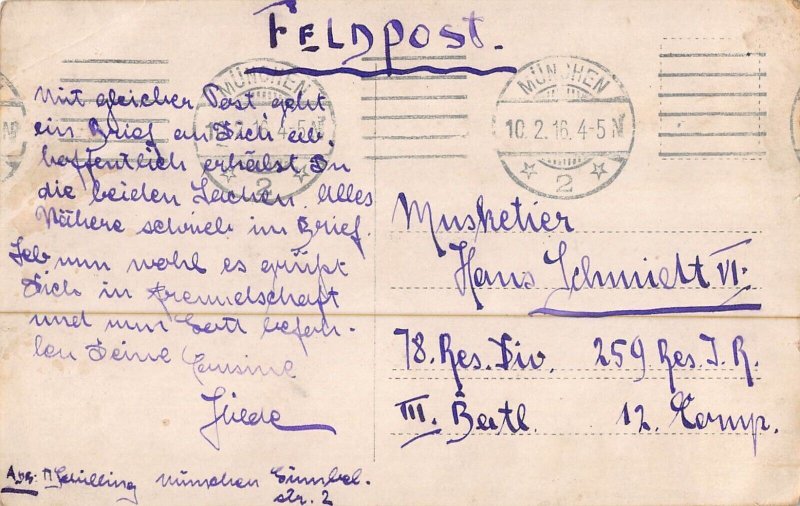 FELDPOST.
MÜNCHEN
10.2.16.4-5N
2
MÜNCHEN
10.2.16.4-5N
2
Mit gleicher Post geht
ein Brief an Dich ab.
hoffentlich erhälst Du
die beiden Sachen. Alles
Nähere schrieb im Brief.
Leb nun wohl es grüßt
Dich in Freundschaft
und nun Gott befoh-
len Deine Cousine
Hilde
Abs: Schilling München
str. 2
Musketier
Hans Schmidt VI.
78. Res. Div. 259 Res. I. R.
III. Batl. 12. Comp.